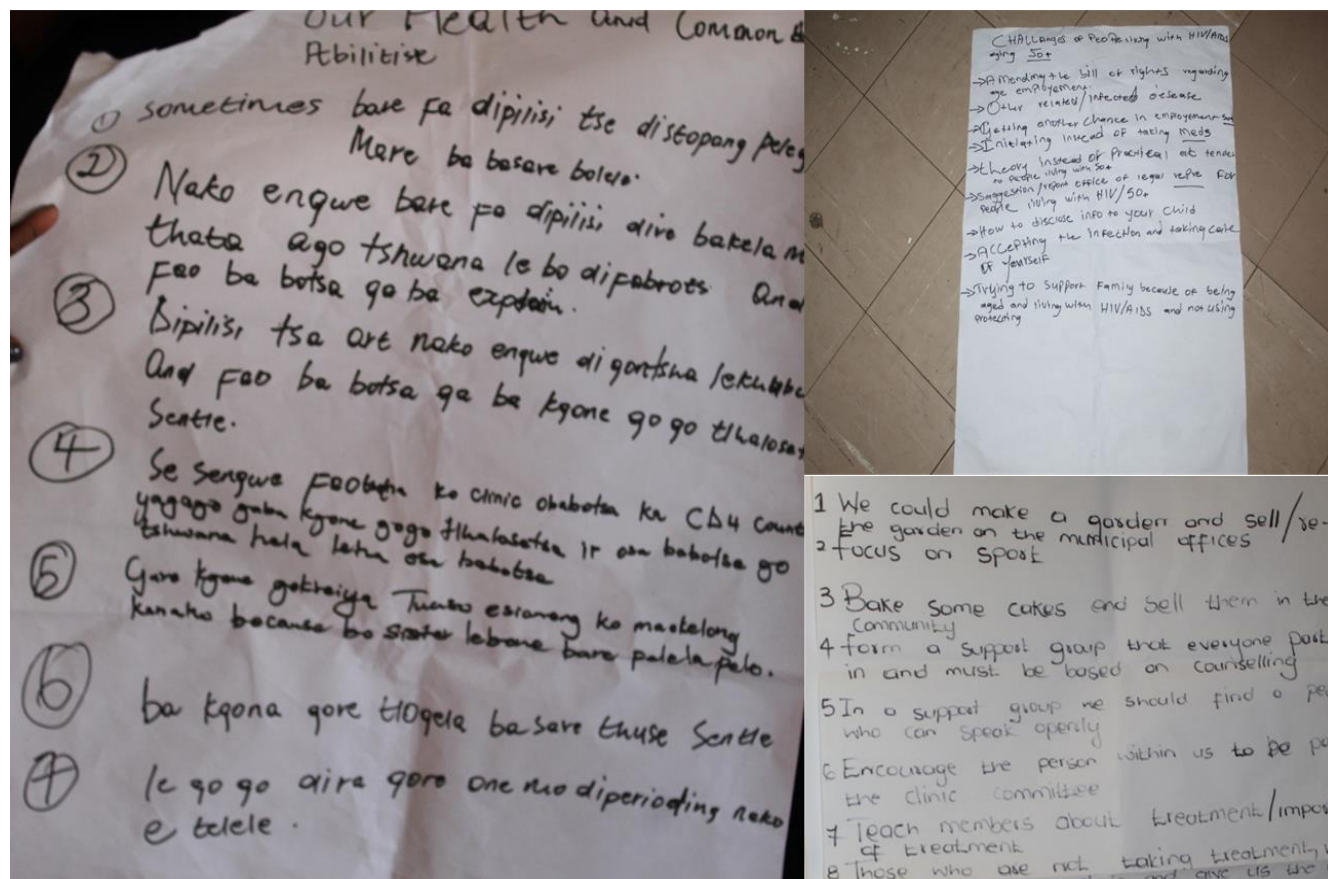 Our Health and Common
Abilitise
① sometimes bare fa dipilisi tse distopang
Mare ba basare bolelo.
② Nako engwe bare fa dipilisi dira bakela
thata ago tshwana le bo difabrots And
Fao ba botsa ga ba explain.
③ Dipilisi tsa art nako engwe di gontsha
And Fao ba botsa ga ba kgone go go tlhalosa
Sentle.
④ Se sengwe ko clinic obabotsa ka CD4 Count
yagago gaba kgone gogo tlhalosetsa ir osa babotsa go
tshwana hela leha osa babotsa
⑤ Gare kgone ko
kanako because bo sister lebone bare palela pelo.
⑥ ba kgona gore tlogela basare thuse Sentle
⑦ le go go dira gore one mo diperioding nako
e telele.
CHALLANges of People living with HIV/AIDS
aging 50+
→Amending the bill of rights regarding
age employement
→Other related/infected desease
→Getting another chance in employement
→Initiating instead of taking Meds
→theory instead of Practical at
to people living with 50+
→Suggestion/report office of legal For
people living with HIV/50+
→How to disclose info to your Child
→Accepting the infection and taking care
OF yourself
→Trying to Support Family because of being
aged and living with HIV/AIDS and not using
protecting
1 We could make a garden and sell/re-
the garden on the municipal offices
2 focus on sport
3 Bake some cakes and sell them in the
community
4 form a support group that everyone
in and must be based on counselling
5 In a support group we should find a
who can speak openly
6 Encourage the person within us to be
the clinic committee
7 Teach members about treatment/
of treatment
8 Those who are not taking treatment,
and give us the